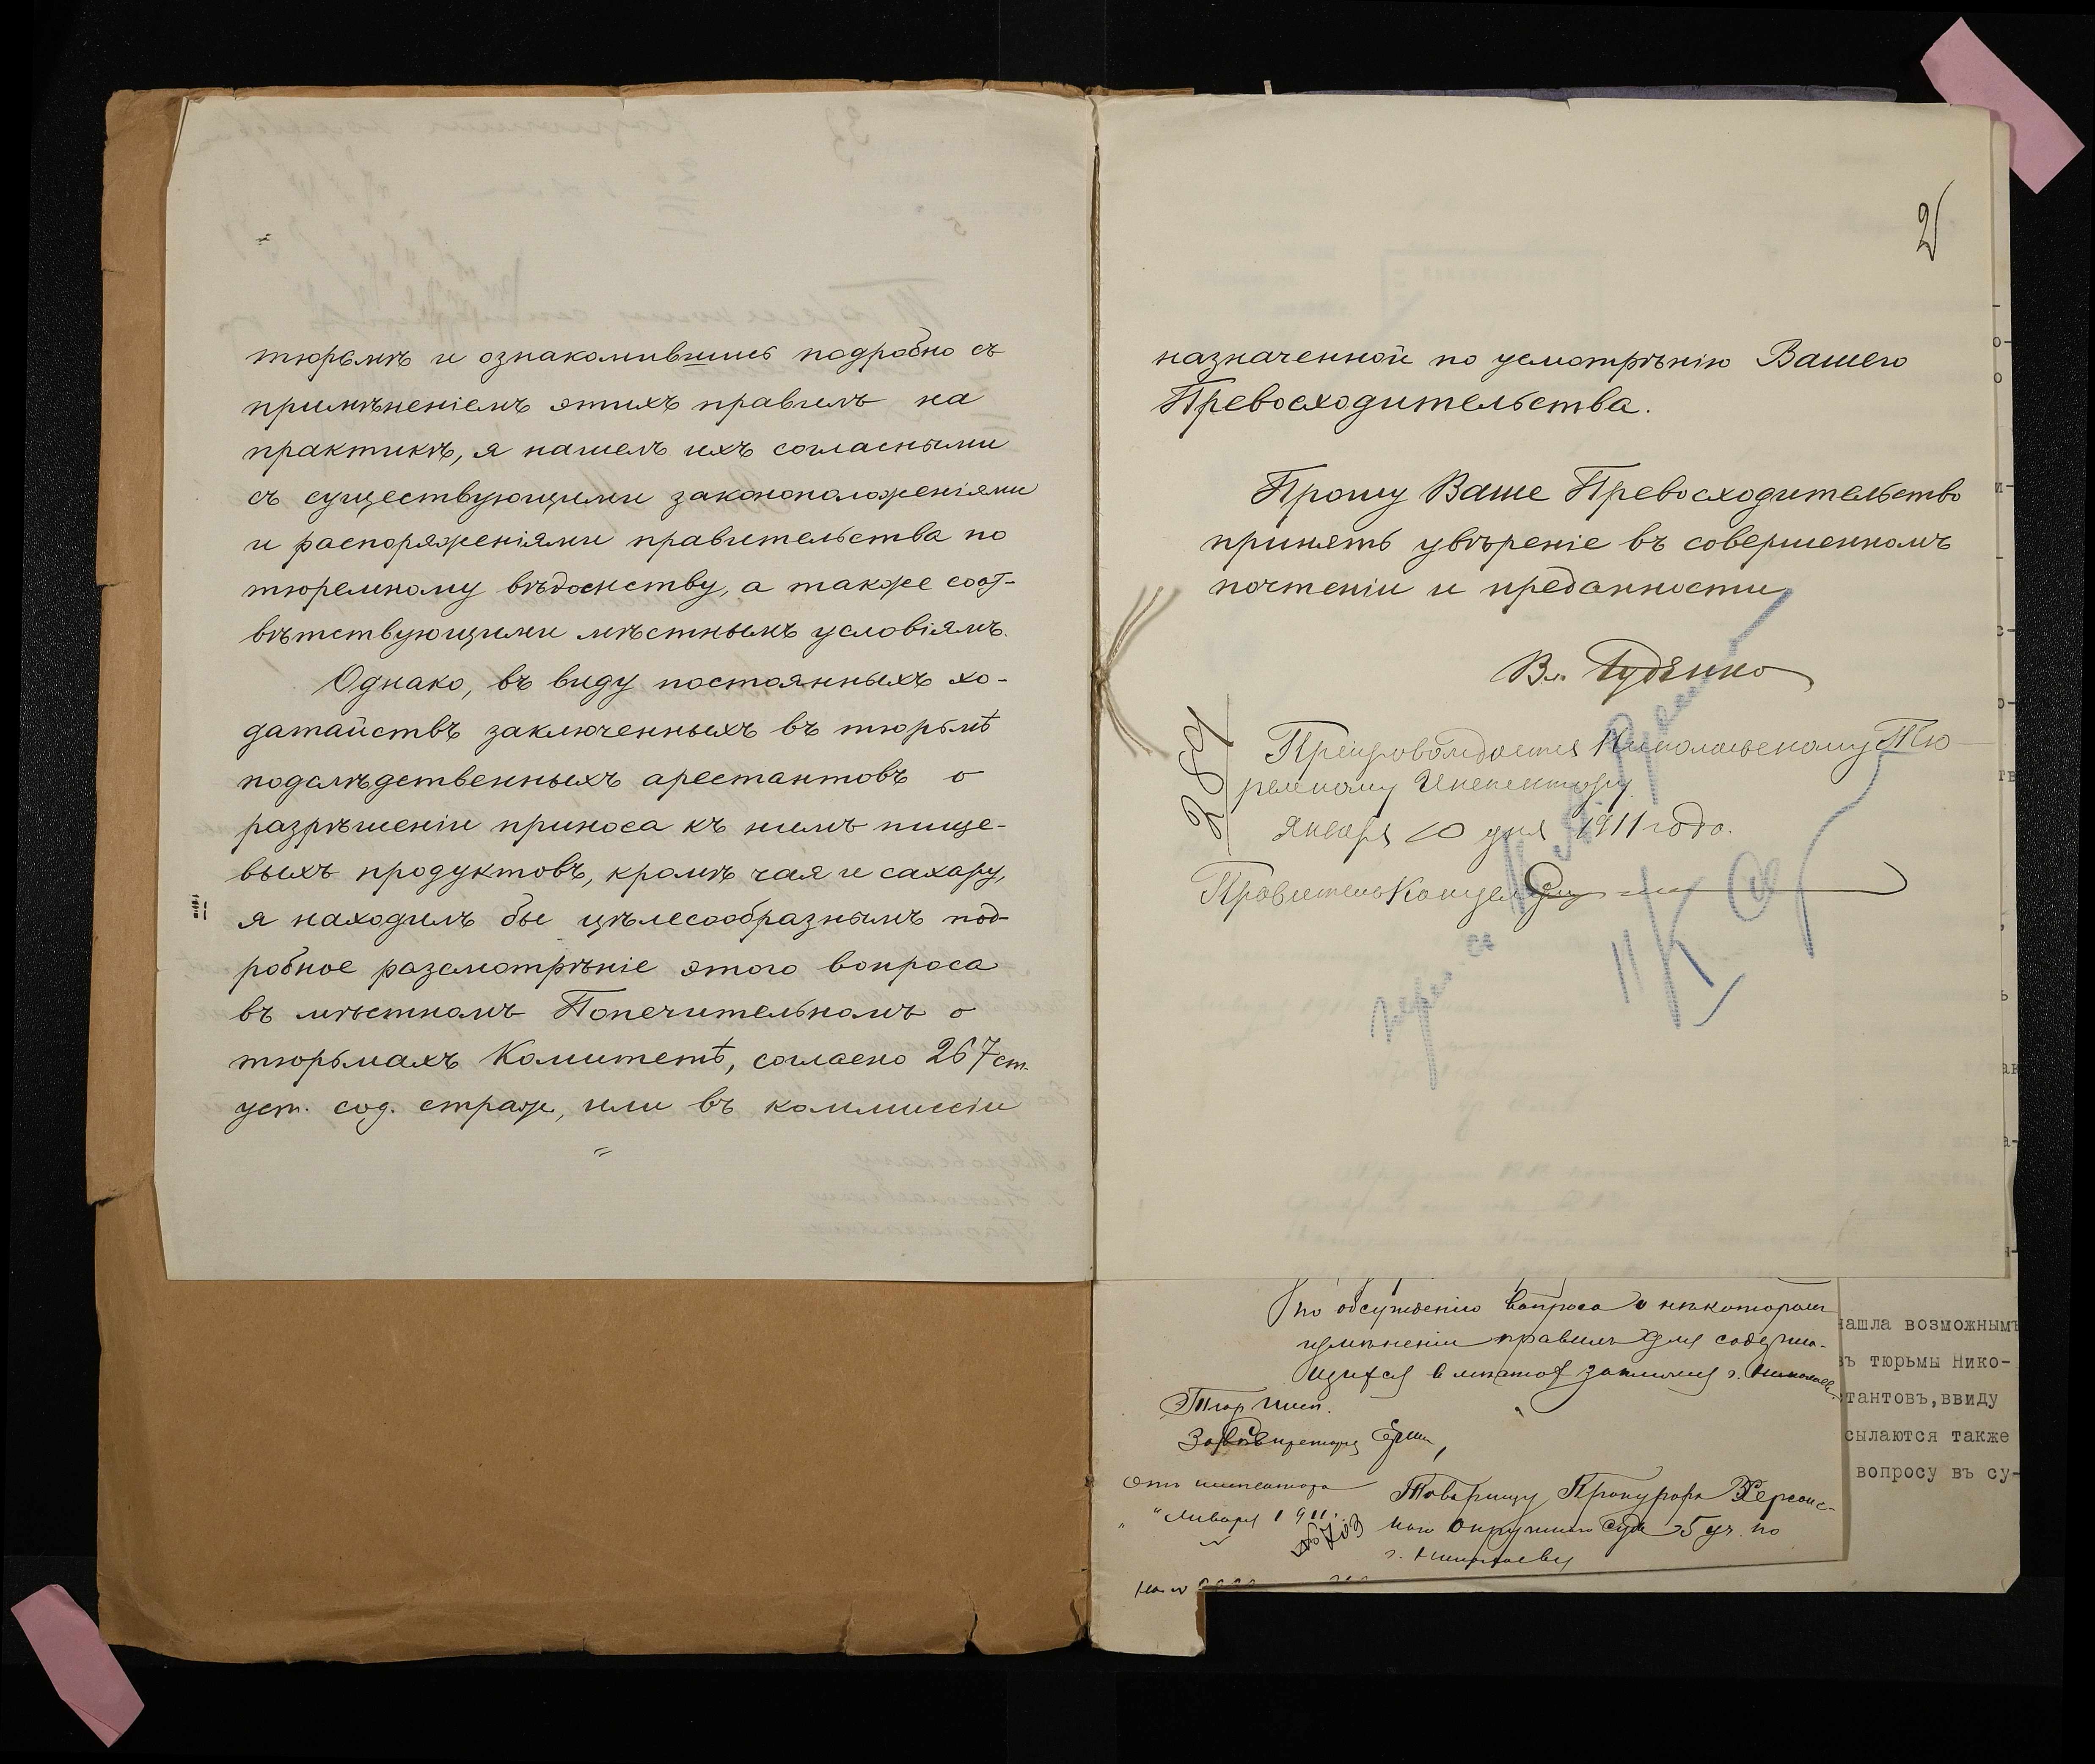 тюрьмѣ и ознакомившись подробно съ
примѣненіемъ этихъ правилъ на
практикѣ, я нашелъ ихъ согласными
съ существующими законоположеніями
и распоряженіями правительства по
тюремному вѣдомству, а также соот-
вѣтствующими мѣстнымъ условіямъ.
Однако, въ виду постоянныхъ хо-
датайствъ заключенныхъ въ тюрьмѣ
подслѣдственныхъ арестантовъ о
разрѣшеніи приноса къ нимъ пище-
выхъ продуктовъ, кромѣ чая и сахару,
я находилъ бы цѣлесообразнымъ под-
робное разсмотрѣніе этого вопроса
въ мѣстномъ Попечительномъ о
тюрьмахъ Комитетѣ, согласно 267 ст.
уст. сод. страж, или въ коммиссіи
2
назначенной по усмотрѣнію Вашего
Превосходительства.
Прошу Ваше Превосходительство
принять увѣреніе въ совершенномъ
почтеніи и преданности
Вл.
289
Препровождается Николаевскому Тю-
ремному Инспектору
Января 10 дня 1911 года.
Правитель Канцеляріи
по обсужденію вопроса о нѣкоторомъ
измѣненіи правилъ для содержа-
щихся в мѣстах заключ г. Николаев
Тюр Инсп.
Секретаря
Января 1911.
№ 703
Товарищу Прокурора Херсонс-
каго Окружного Суда 5 уч. по
г. Николаеву
нашла возможнымъ
въ тюрьмы Нико-
стантовъ, ввиду
сылаются также
вопросу въ су-